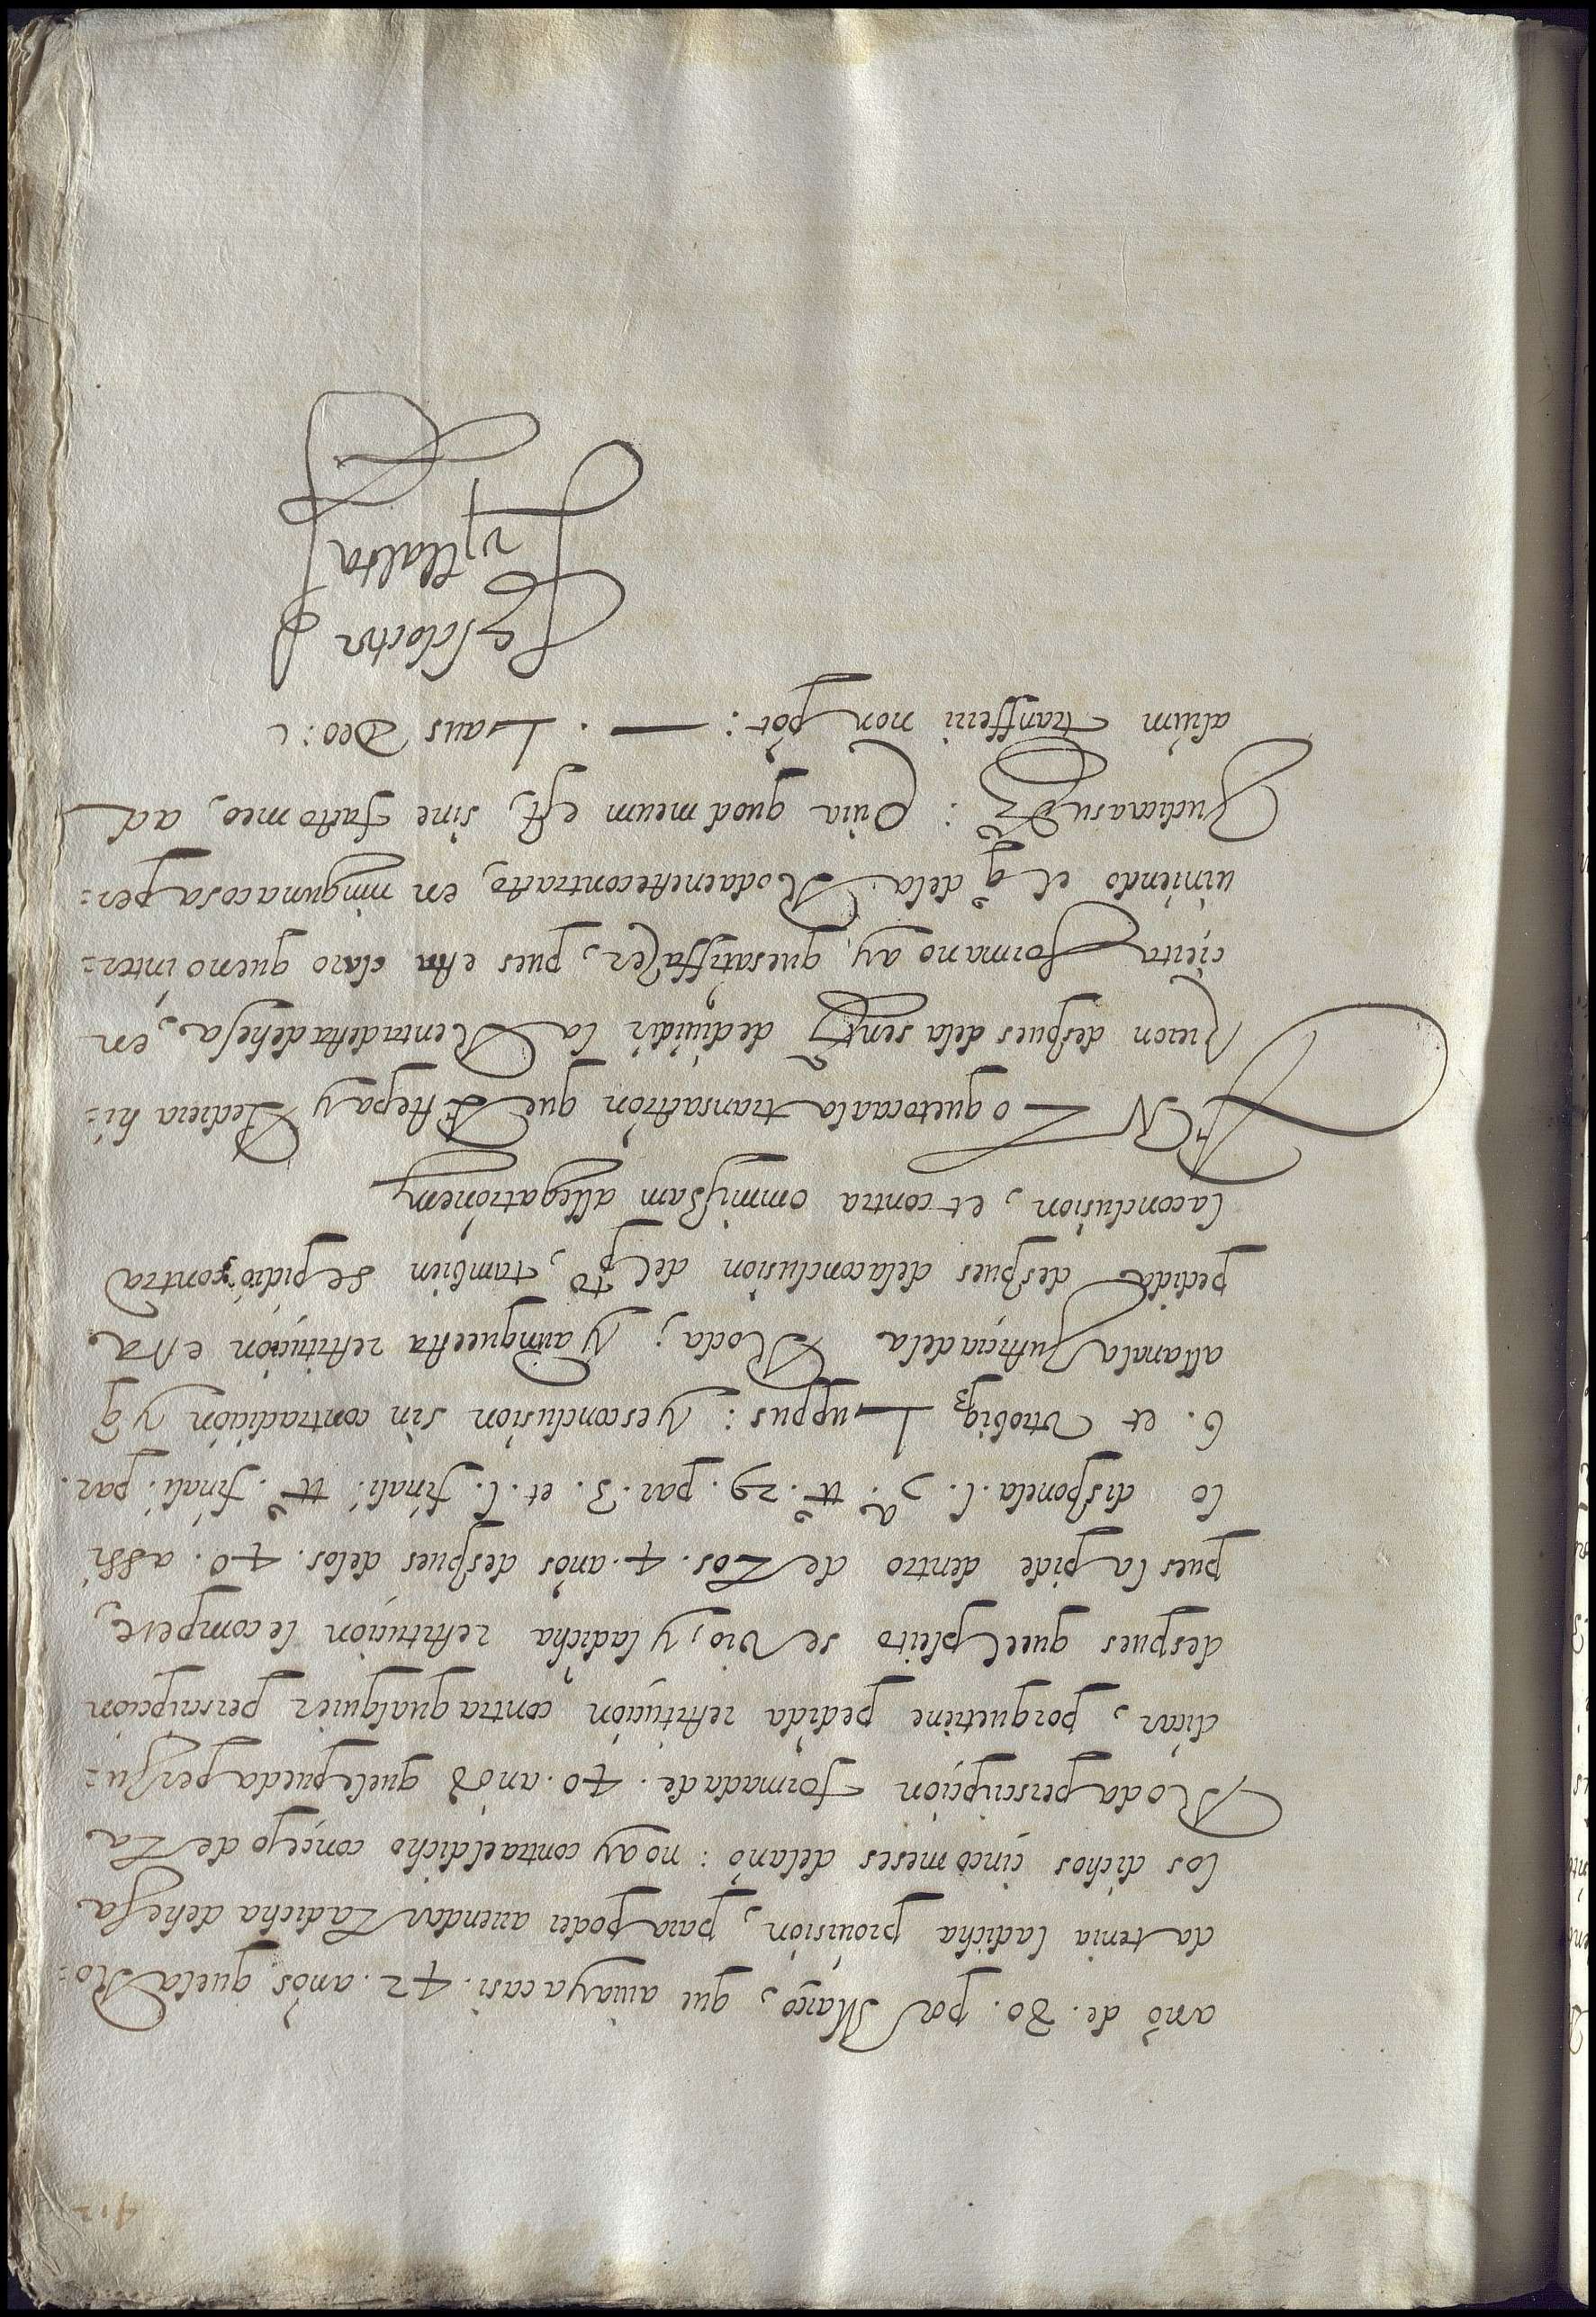 412
ano de .80. por Março, que auia ya casi .42. anos quela Ro:
da tenia ladicha prouision, para poder arrendar Ladicha dehesa
los dichos çinco meses delano: no ay contra eldicho conçejo de La
Roda perscripçion formada de .40. anos quele pueda perju:
dicar, porquetiene pedida restituçion contra qualquier perscripçion
despues quel pleito se vio, y ladicha restituçion le compete,
pues la pide dentro de Los .4. anos despues delos .40. assi
lo dispone la .l. tt.º 29. par. 3. et .l. finali. tt.º finali. par.
6. et Luppus: y esconclusion sin contradiçion y q
allana la Justiçia dela Roda; y aunque esta restituçion esta
pedida despues dela conclusion del pto, tambien se pidio contra
la conclusion, et contra ommissam allegationem
EN Lo quetoca ala transaction que Estepa y Pediera hi:
çieron despues dela sentª dediuidir la Renta desta dehesa, en
çierta forma no ay que satisfazer, pues esta claro que no inter:
uiniendo el qº dela Roda en este contracto, en ninguna cosa per:
Judica a su drº: Quia quod meum est, sine facto meo, ad
alium transfferri non pot: — . Laus Deo:
el doctor
villalta